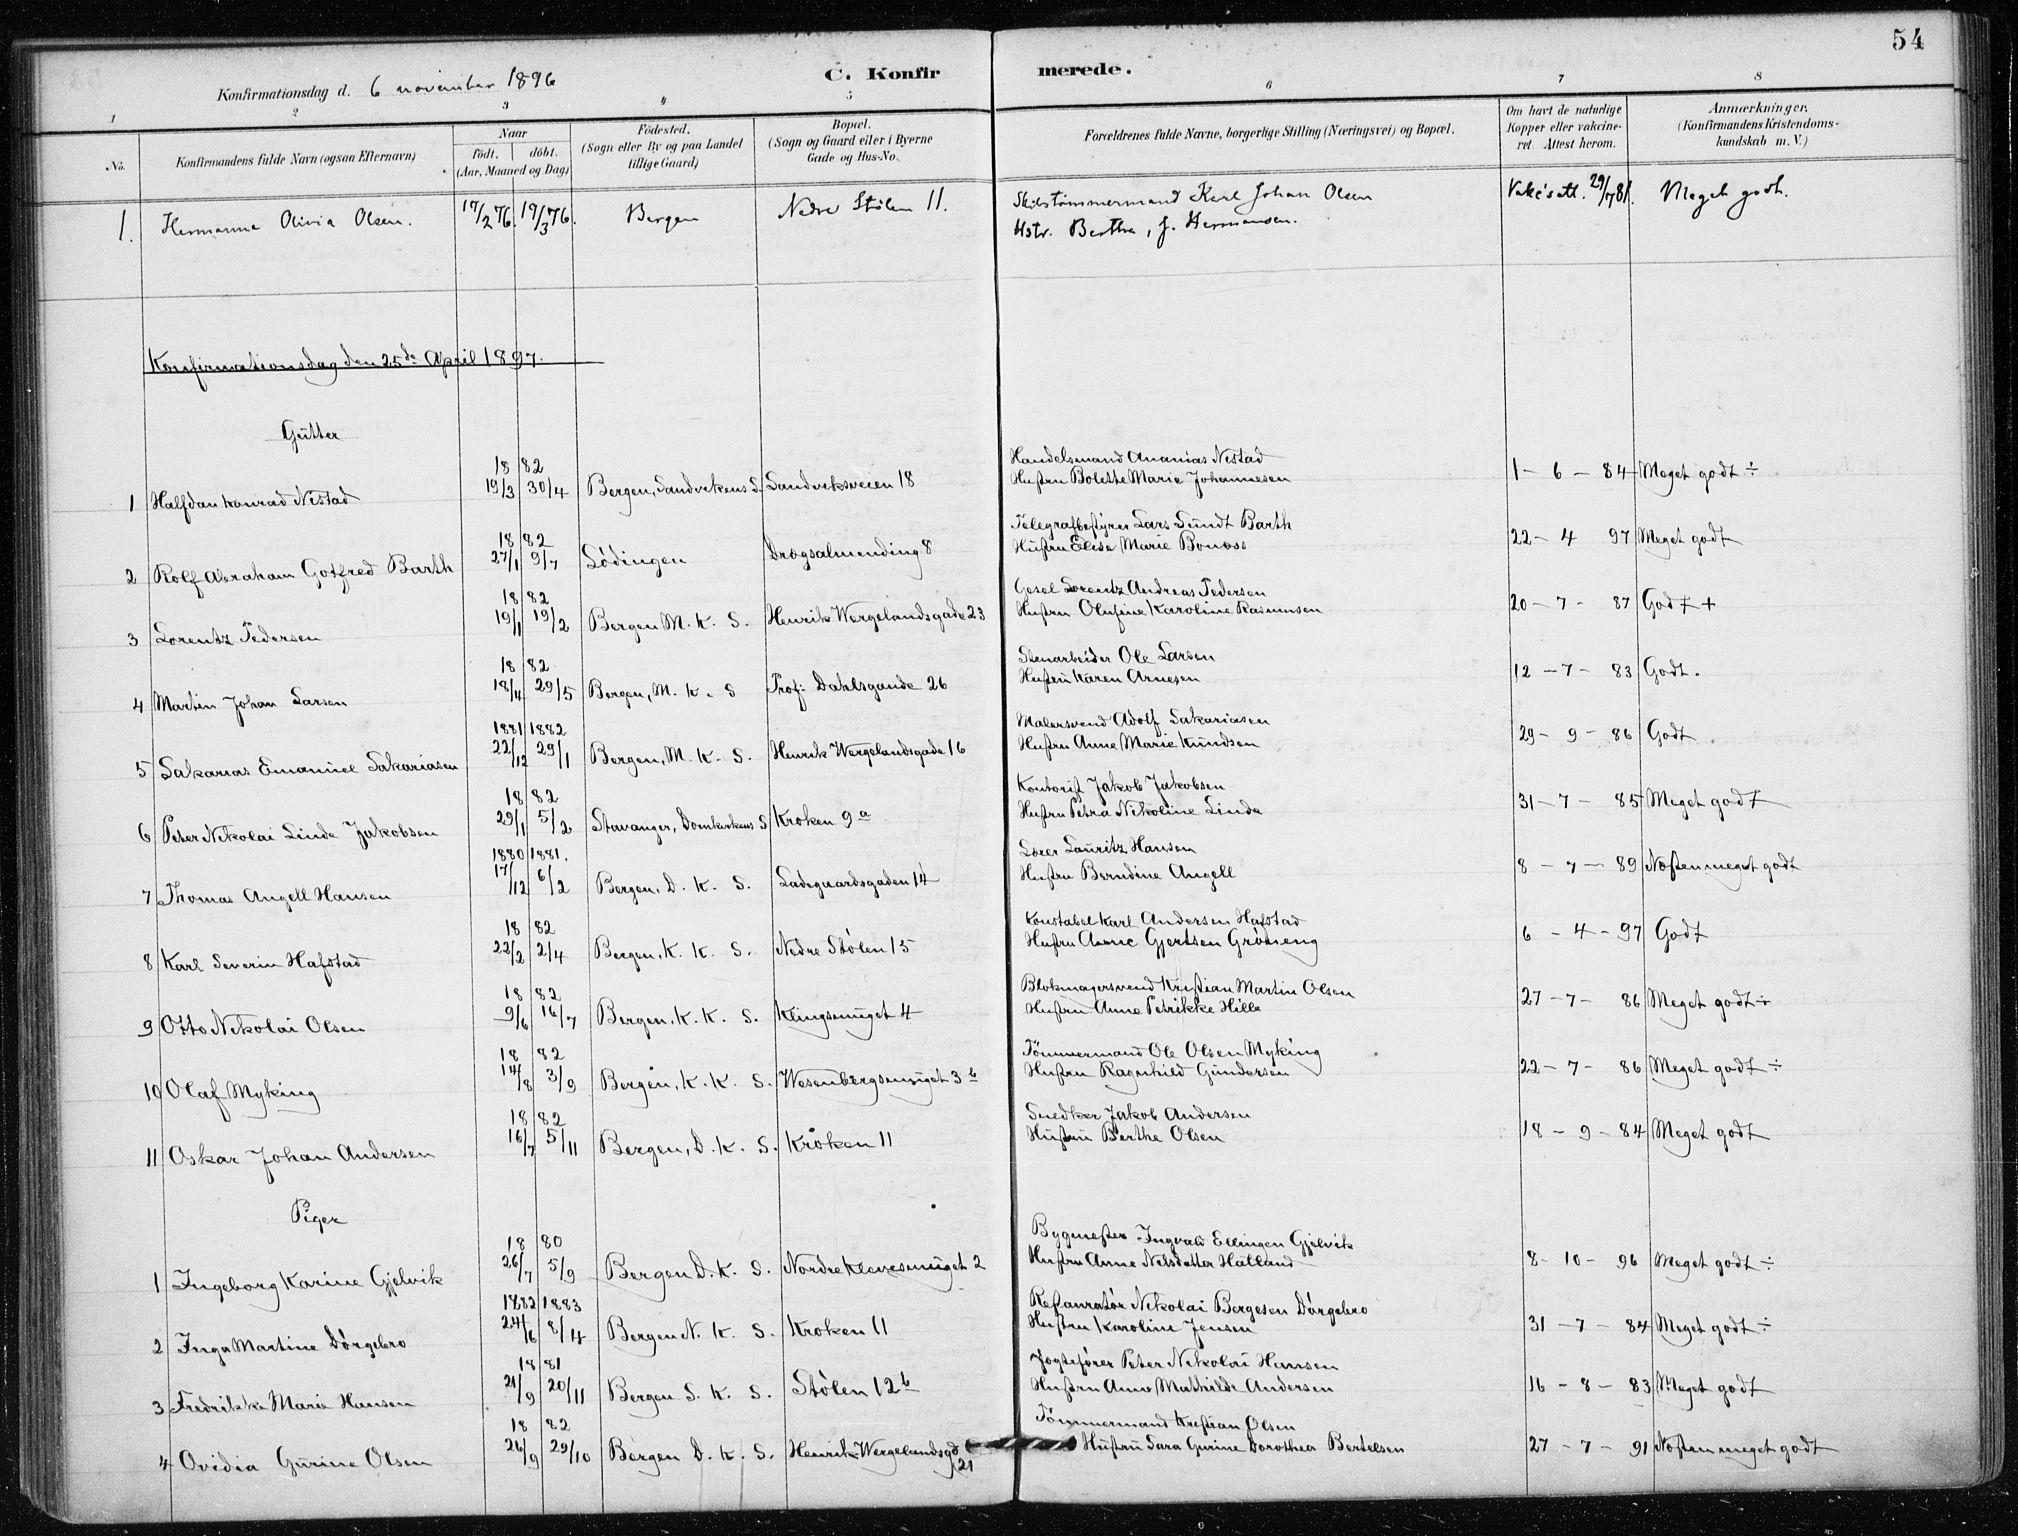 54
C. Konfirmerede.
Konfirmationsdag d. 6 november 1896
1 2 3 4 5 6 7 8
No. Konfirmandens fulde Navn (ogsaa Efternavn) Naar födt. döbt. (Aar, Maaned og Dag) Födested. (Sogn eller By og paa Landet tillige Gaard) Bopæl. (Sogn og Gaard eller i Byerne Gade og Hus-No. Forældrenes fulde Navne, borgerlige Stilling (Næringsvei) og Bopæl. Om havt de naturlige Kopper eller vakcineret Attest herom. Anmærkninger. (Konfirmandens Kristendomskundskab m. V.)
1. Hermanna Olivia Olsen. 17/2 76. 19/3 76. Bergen Nedre Stølen 11. Skibstømmermand Karl Johan Olsen Vakc.att. 29/7 81. Meget godt.
Hstr. Bertha, f. Hermansen.
Konfirmationsdag den 25de April 1897.
Gutter
1 Halfdan Konrad Nistad 1882 19/3 30/4 Bergen, Sandvikens S. Sandviksveien 18 Handelsmand Ananias Nistad
Hustru Bolette Marie Johannesen 1-6-84 Meget godt ÷
2 Rolf Abraham Gotfred Barth 1882 27/1 9/7 Lødingen Drægsalmending 8 Telegrafbestyrer Lars Sundt Barth
Hustru Elise Marie Bonæss 22-4 97 Meget godt
3 Lorentz Pedersen 1882 19/1 19/2 Bergen M. K. S. Henrik Wergelandsgade 23 Gesel Lorentz Andreas Pedersen
Hustru Olufine Karoline Rasmussen 20-7-87 Godt +
4 Martin Johan Larsen 1882 18/4 29/5 Bergen, M. K. S Prof: Dahlsgande 26 Stenarbeider Ole Larsen
Hustru Karen Arnesen 12-7-83 Godt.
5 Sakarias Emanuel Sakariasen 1881 1882 22/12 29/1 Bergen, M. K. S. Henrik Wergelandsgade 16 Malersvend Adolf Sakariasen
Hustru Anne Marie Knudsen 29-9-86 Godt
6 Peter Nikolai Linde Jakobsen 1882 29/1 5/2 Stavanger, Domkirkens S Kroken 9a Kontorist Jakob Jakobsen
Hustru Petra Nikoline Linde 31-7-85 Meget godt
7 Thomas Angell Hansen 1880 1881. 17/12 6/2 Bergen, D. K. S. Ladegaardsgaden 14 Lærer Lauritz Hansen
Hustru Berndine Angell 8-7-89 Næsten meget godt
8 Karl Severin Hafstad 1882 22/2 2/4 Bergen. K. K. S. Nedre Stølen 15 Konstabel Karl Andersen Hafstad
Hustru Anne Gjertsen Grøneng 6-4-97 Godt
9 Otto Nikolai Olsen 1882 9/6 16/7 Bergen. K. K. S. Klingsmuget 4 Blokmagersvend Kristian Martin Olsen
Hustru Anne Petrikke Hille 27-7-86 Meget godt ÷
10 Olaf Myking 1882 14/8 3/9 Bergen, K. K. S. Wesenbergsmuget 3b Tømmermand Ole Olsen Myking
Hustru Ragnhild Gundersen 22-7-86 Meget godt ÷
11 Oskar Johan Andersen 1882 16/7 5/11 Bergen, D. K. S. Kroken 11 Snedker Jakob Andersen
Hustru Berthe Olsen 18-9-84 Meget godt
Piger
1 Ingeborg Karine Gjelvik 1880 26/7 5/9 Bergen D. K. S. Nordre Klevesmuget 2 Bygmester Ingvald Ellingen Gjelvik
Hustru Anne Nilsdatter Hatland 8-10-96 Meget godt ÷
2 Inga Martine Dørgebro 1882 1883 24/6 8/4 Bergen N. K. S. Kroken 11 Restauratør Nikolai Bergesen Dørgebro
Hustru Karoline Jensen 31-7-84 Meget godt ÷
3 Fredrikke Marie Hansen 1881 21/9 20/11 Bergen S. K. S. Stølen 12b Jogtefører Peter Nikolai Hansen
Hustru Anne Mathilde Andersen 16-8-83 Meget godt
4 Ovidia Gurine Olsen 1882 26/9 29/10 Bergen D. K. S. Henrik Wergelandsgd 21 Tømmermand Kristian Olsen
Hustru Sara Gurine Dorothea Bertelsen 27-7-91 Næsten meget godt